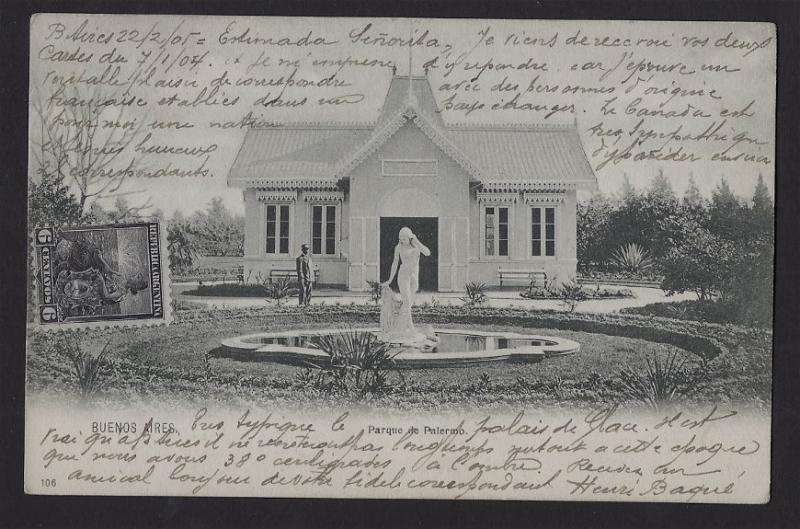 BAires 22/2/05 = Estimada Señorita, Je viens de recevoir vos deux
Cartes du 7/1/04. et je m'empresse d'y repondre car j'éprouve un
veritable plaisir de correspondre avec des personnes d'origine
française et ablies dans un pays étranger. Le Canada est
pour moi une nation tres sympathique
et suis heureux d'y posséder environ
20 correspondants.
6 CENTAVOS 6
REPUBLICA ARGENTINA
BUENOS AIRES, Parque de Palermo.
Tres typique le palais de Glace. Il est
vrai qu' il ne resterait pas longtemps surtout a cette époque
que nous avons 38° centigrades à l'ombre. Recevez un
amical bonjour de votre fidele correspondant Henri Baqué
106